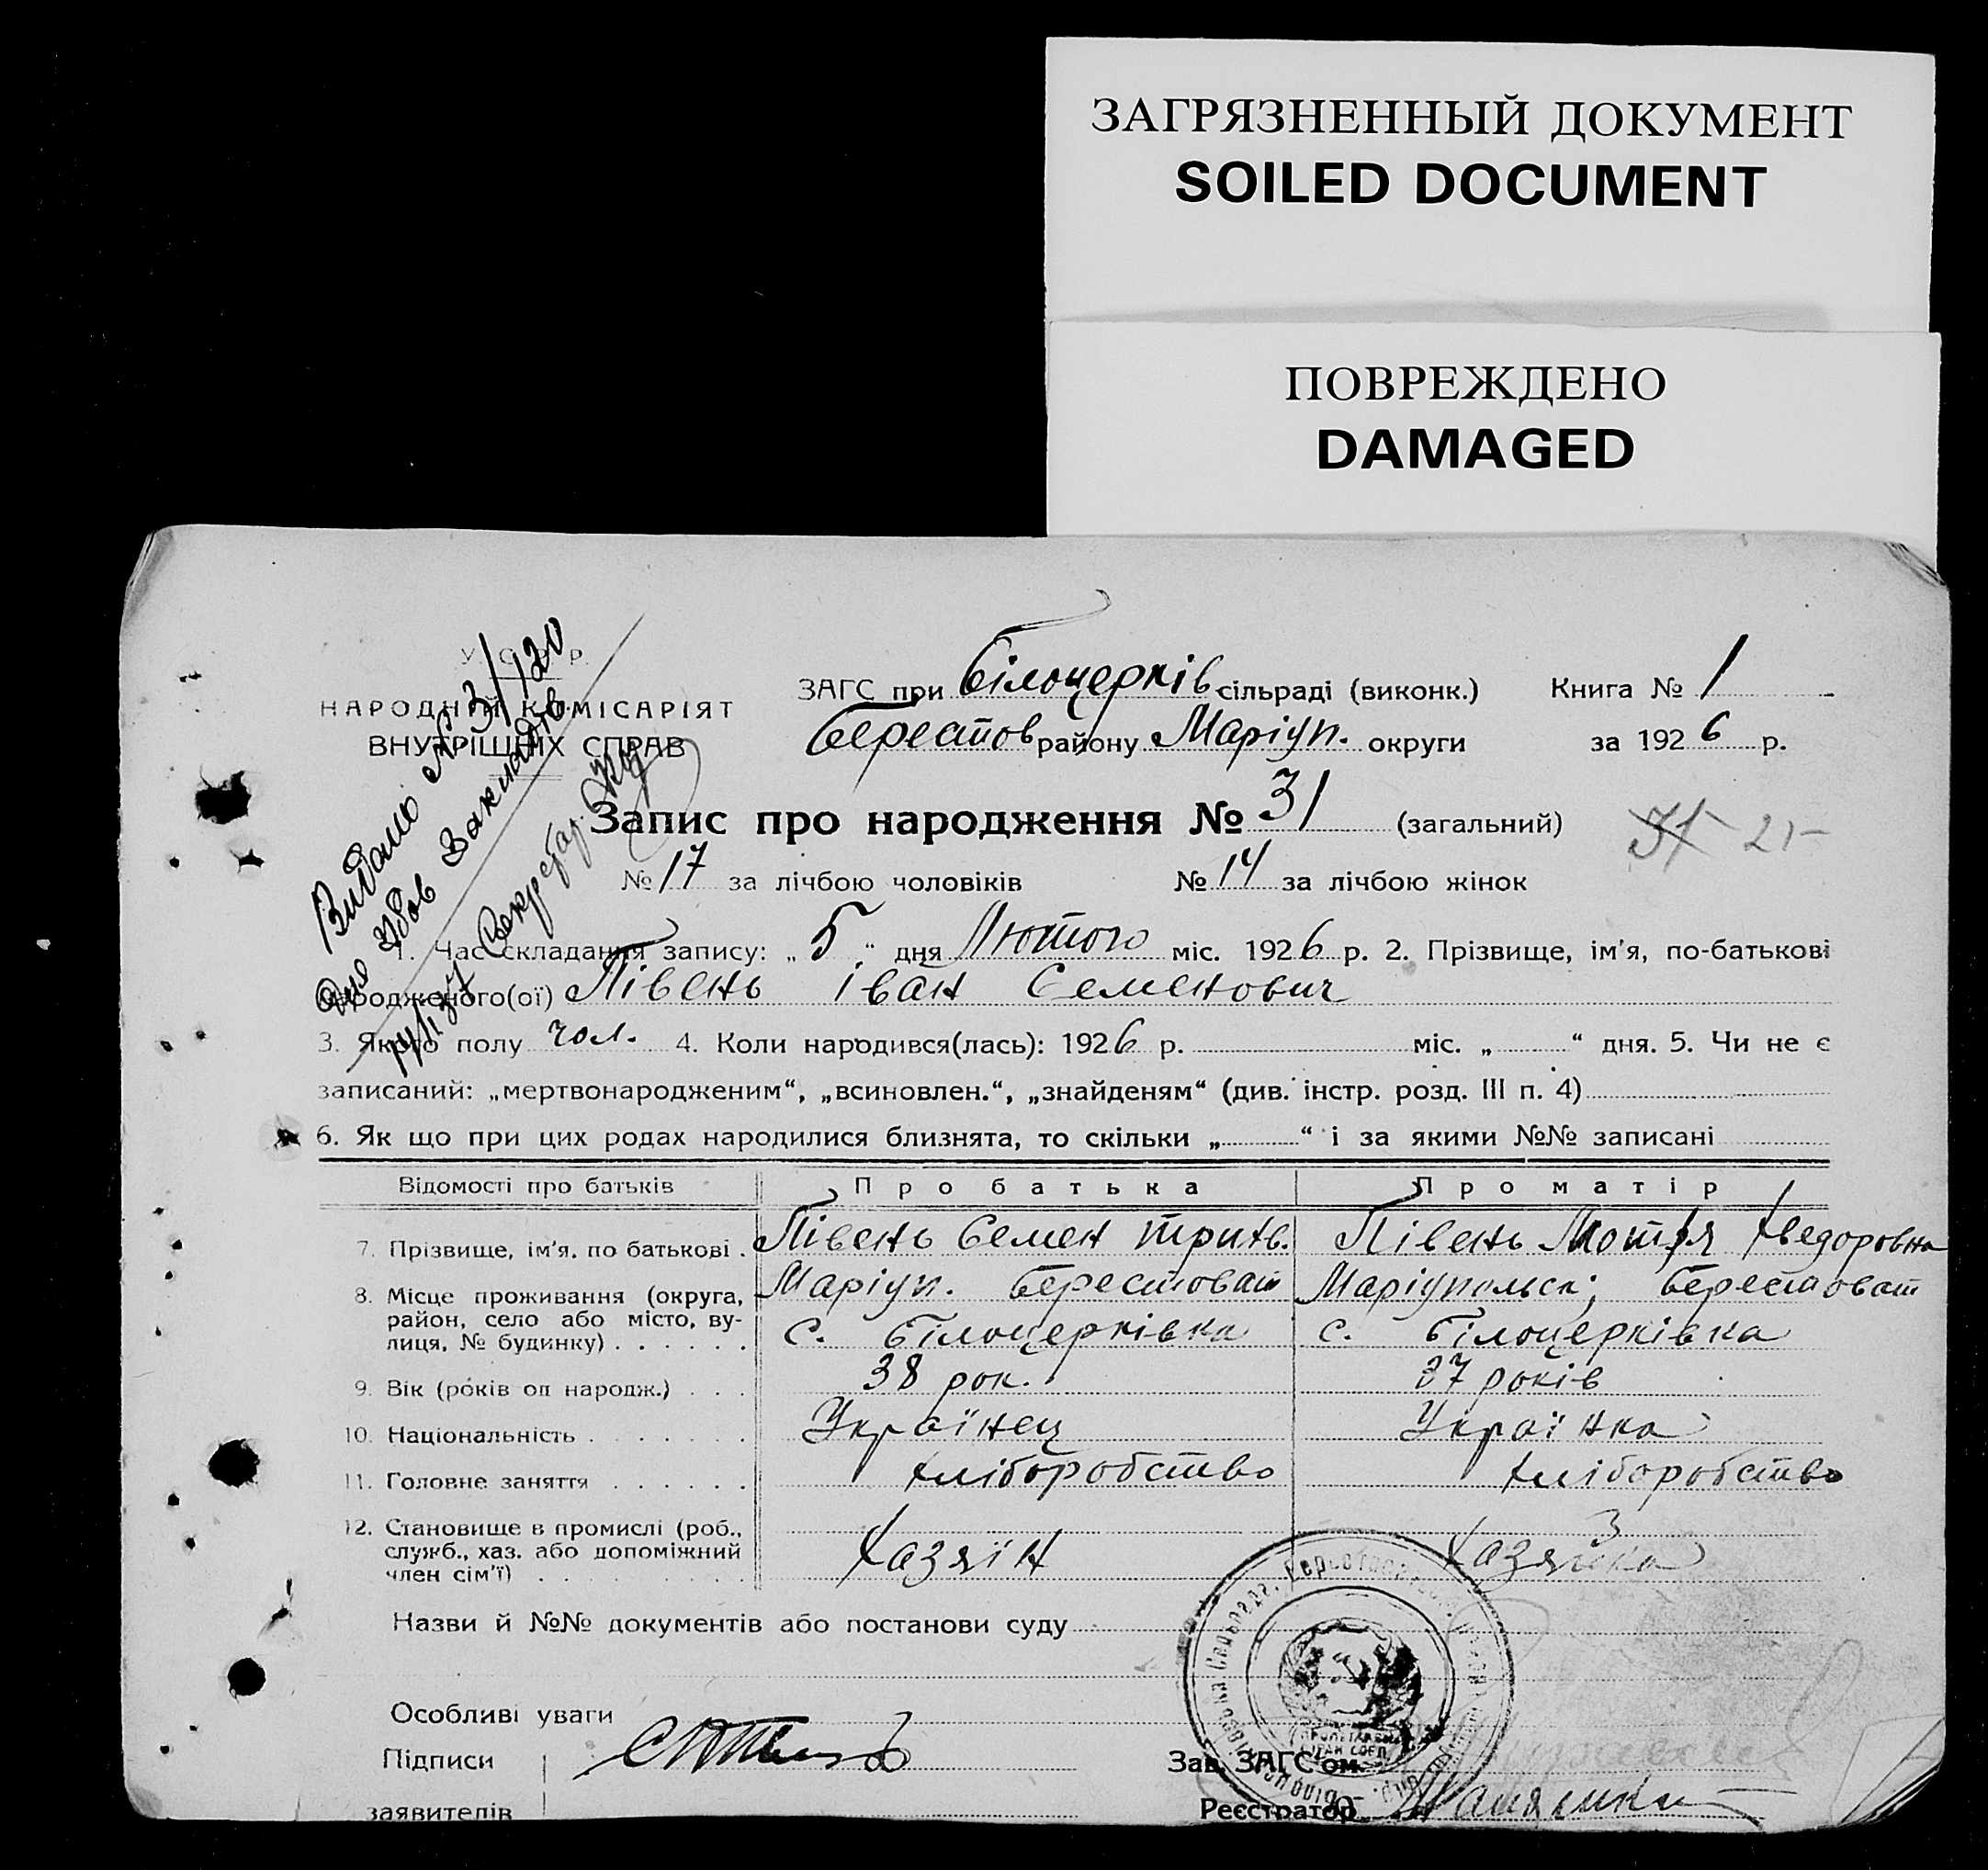 ЗАГРЯЗНЕННЫЙ ДОКУМЕНТ
SOILED DOCUMENT
ПОВРЕЖДЕНО
DAMAGED
НАРОДНИЙ КОМІСАРІЯТ
ВНУТРІШНІХ СПРАВ
Видано № 3/120
для Збов Закладів
Секретар
ЗАГС при Білоцерків сільраді (виконк.) Книга № 1
Берестов району Маріуп. округи за 1926 р.
Запис про народження № 31 (загальний)
31 21
№ 17 за лічбою чоловіків № 14 за лічбою жінок
1. Час складання запису: „5“ дня Лютого міс. 1926 р. 2. Прізвище, ім'я, по-батькові
народженого(ої) Півень Іван Семенович
3. Якого полу чол. 4. Коли народився(лась): 1926 р. міс. „ “ дня. 5. Чи не є
записаний: „мертвонародженим“, „всиновлен.“, „знайденям“ (див. інстр. розд. III п. 4)
6. Як що при цих родах народилися близнята, то скільки „ “ і за якими №№ записані
Відомості про батьків Про батька Про матір
7. Прізвище, ім'я, по батькові . Півень Семен Трихв. Півень Мотря Хведоровна
8. Місце проживання (округа, Маріуп. Берестоват Маріупольск; Берестоват
район, село або місто, ву-
лиця, № будинку) . . . . . . с. Білоцерківка с. Білоцерківка
9. Вік (років од народж.) . . . 38 рок. 37 років
10. Національність . . . . . . . Українец Українка
11. Головне заняття . . . . . . Хліборобство Хліборобство
12. Становище в промислі (роб.,
служб., хаз. або допоміжний Хазяїн Хазяйка
член сім'ї) . . . . . . . . .
Назви й №№ документів або постанови суду
Особливі уваги
Підписи Зав. ЗАГС'ом
заявителів Реєстратор